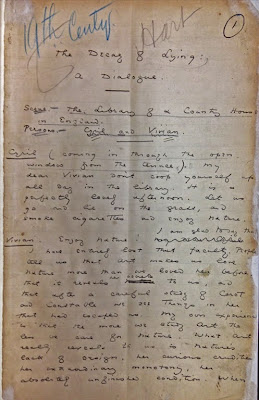 19th Centy Hart
1
The Decay of Lying:
A Dialogue.
Scene - The Library of a Country House
in England.
Persons - Cyril and Vivian.
Cyril (coming in through the open
window from the terrace): My
dear Vivian don't coop yourself up
all day in the library. It is a
perfectly lovely afternoon. Let us
go and lie on the grass, and
smoke cigarettes and enjoy nature.
Vivian Enjoy Nature! I am glad to say that
I have entirely lost that faculty. People
tell us that Art makes us love
nature more than we loved her before,
that it reveals her secrets to us, and
that after a careful study of Corot
and Constable we see things in her
that had escaped us. My own experience
is that the more we study Art, the
less we care for Nature. What Art
really reveals to us is Nature's
lack of design, her curious crudities
her extraordinary monotony, her
absolutely unfinished condition. When